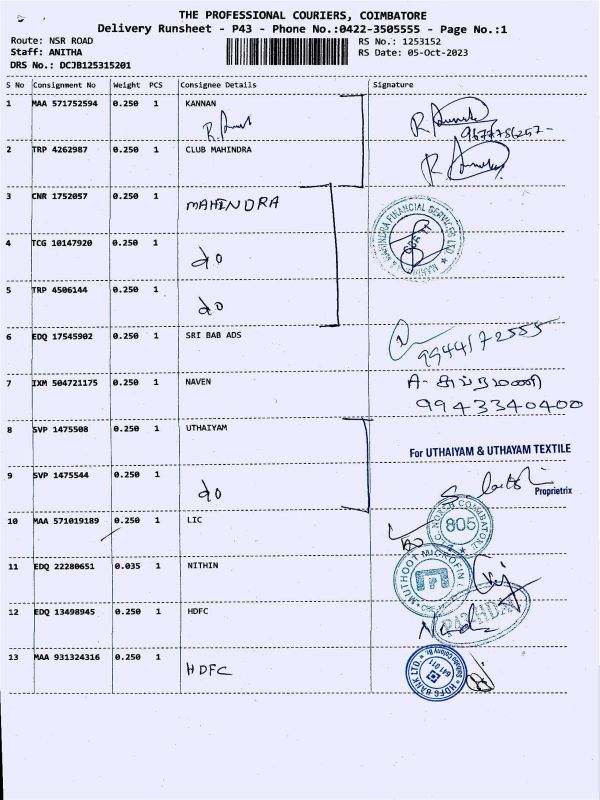 THE PROFESSIONAL COURIERS, COIMBATORE
Delivery Runsheet - P43 - Phone No.:0422-3505555 - Page No.:1
Route: NSR ROAD
Staff: ANITHA
DRS No.: DCJB125315201
RS No.: 1253152
RS Date: 05-Oct-2023
S No Consignment No Weight PCS Consignee Details Signature
1 MAA 571752594 0.250 1 KANNAN
9677786257-
2 TRP 4262987 0.250 1 CLUB MAHINDRA
3 CNR 1752057 0.250 1 MAHINDRA
MAHINDRA FINANCIAL SERVICES LTD.
4 TCG 10147920 0.250 1 do
5 TRP 4506144 0.250 1 do
6 EDQ 17545902 0.250 1 SRI BAB ADS
9944172555
7 IXM 504721175 0.250 1 NAVEN
A- சுப்ரமணி
9943340400
8 SVP 1475508 0.250 1 UTHAIYAM
For UTHAIYAM & UTHAYAM TEXTILE
9 SVP 1475544 0.250 1 do
Proprietrix
10 MAA 571019189 0.250 1 LIC
805
11 EDQ 22280651 0.035 1 NITHIN
MUTHOOT MICROFIN
12 EDQ 13498945 0.250 1 HDFC
13 MAA 931324316 0.250 1 HDFC
HDFC BANK LTD.
641 011